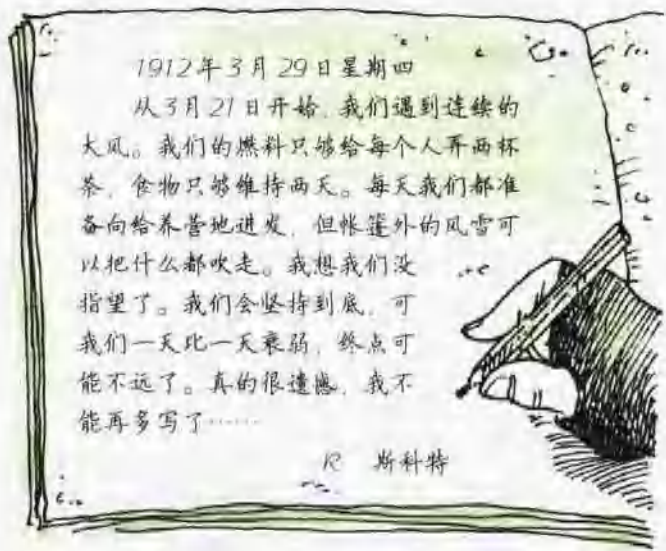 1912年3月29日星期四
从3月21日开始，我们遇到连续的
大风。我们的燃料只够给每个人弄两杯
茶，食物只够维持两天。每天我们都准
备向给养营地进发，但帐篷外的风雪可
以把什么都吹走。我想我们没
指望了。我们会坚持到底，可
我们一天比一天衰弱，终点可
能不远了。真的很遗憾，我不
能再多写了……
R 斯科特